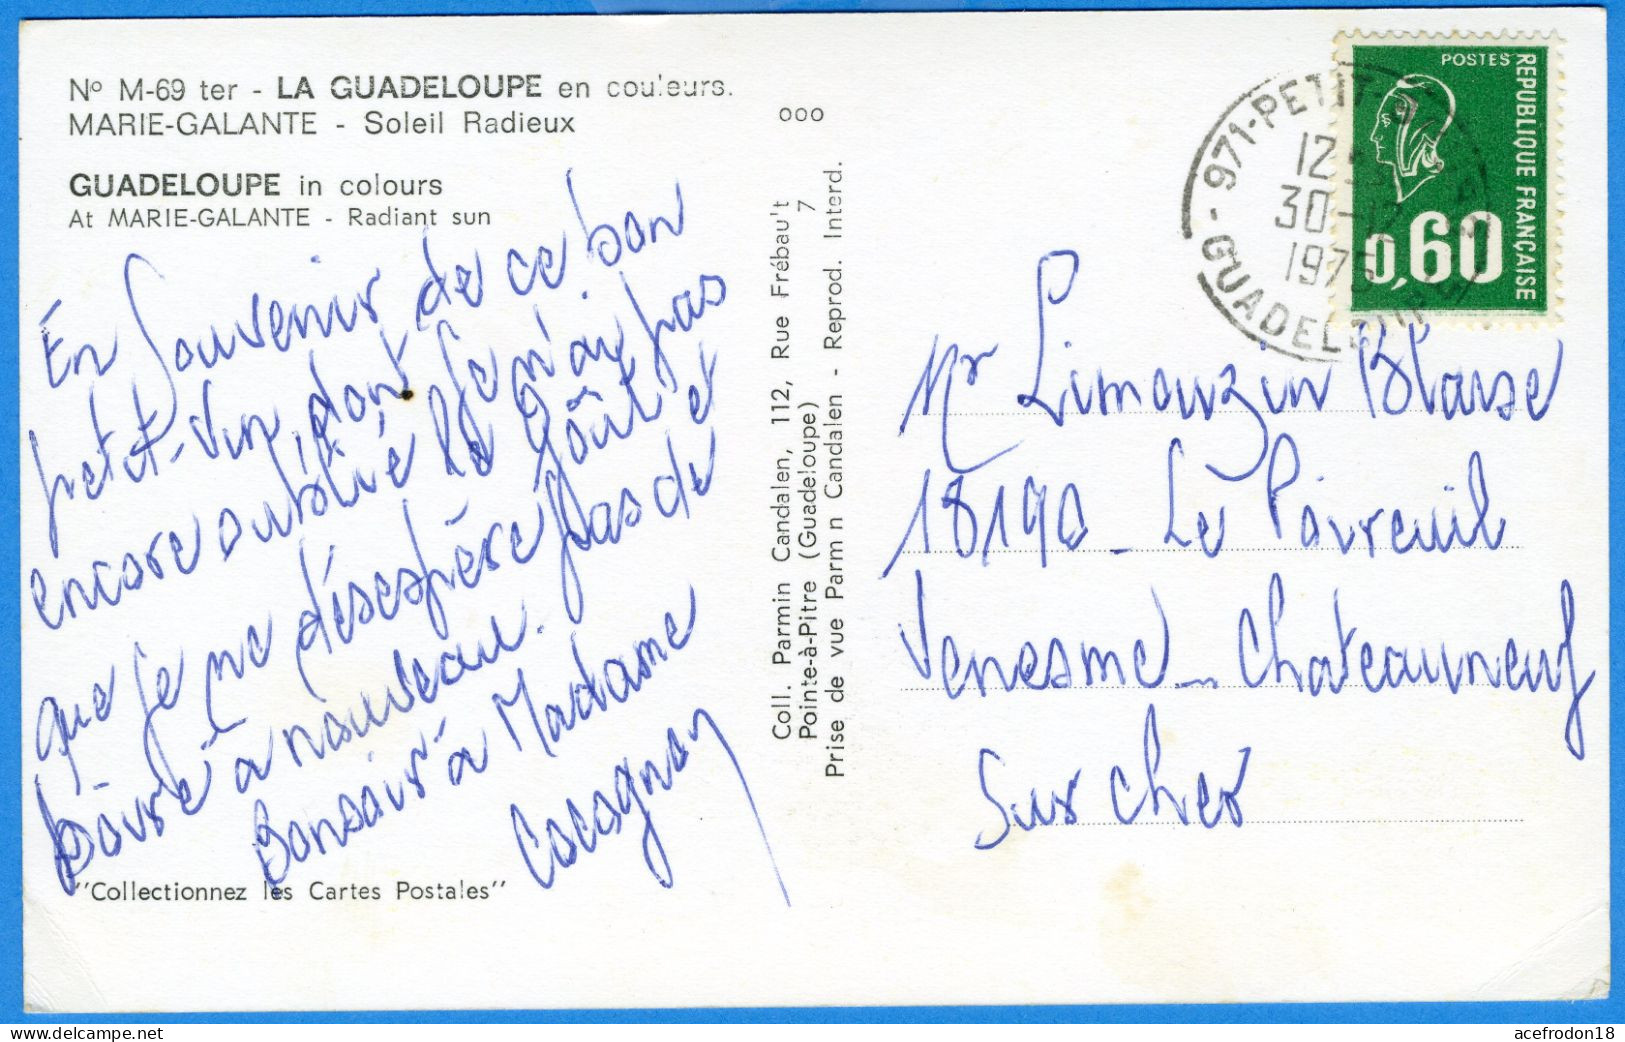 Nº M-69 ter - LA GUADELOUPE en couleurs.
MARIE-GALANTE - Soleil Radieux
GUADELOUPE in colours
At MARIE-GALANTE - Radiant sun
En souvenir de ce bon
petit-vin, dont je n'ai pas
encore oublié le goût et
que je ne désespère pas de
boire à nouveau.
Bonsoir à Madame
Cocagnay
"Collectionnez les Cartes Postales"
ooo
Coll. Parmin Candalen, 112, Rue Frébau't
Pointe-à-Pitre (Guadeloupe) 7
Prise de vue Parm n Candalen - Reprod. Interd.
POSTES
REPUBLIQUE FRANÇAISE
0,60
971-PETIT
12
30-12
197
GUADELOUPE
Mr Limouzin Blaise
18190 - Le Poireuil
Venesme - Chateauneuf
Sur Cher
acefrodon18